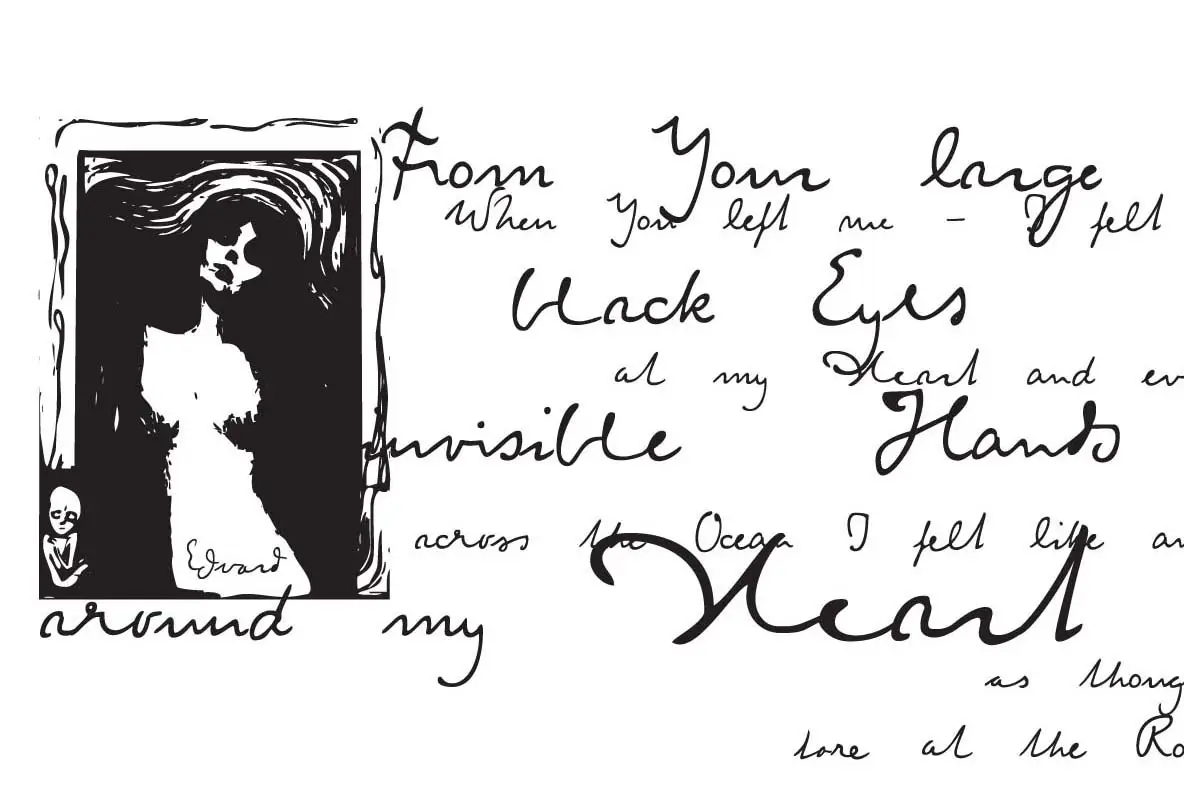 From Your large
When You left me – I felt
black Eyes
at my Heart and
invisible Hands
across the Ocean I felt like
Edvard
around my Heart
as
tore at the